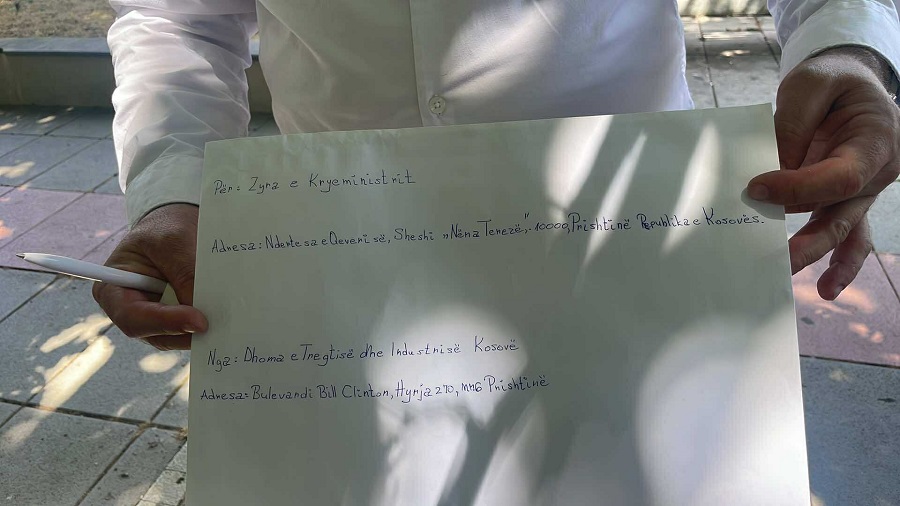 Për: Zyra e Kryeministrit
Adresa: Ndertesa e Qeverisë, Sheshi „Nëna Terezë”, 10000, Prishtinë Republika e Kosovës.
Nga: Dhoma e Tregtisë dhe Industrisë Kosovë
Adresa: Bulevardi Bill Clinton, Hyrja 270, nn6 Prishtinë